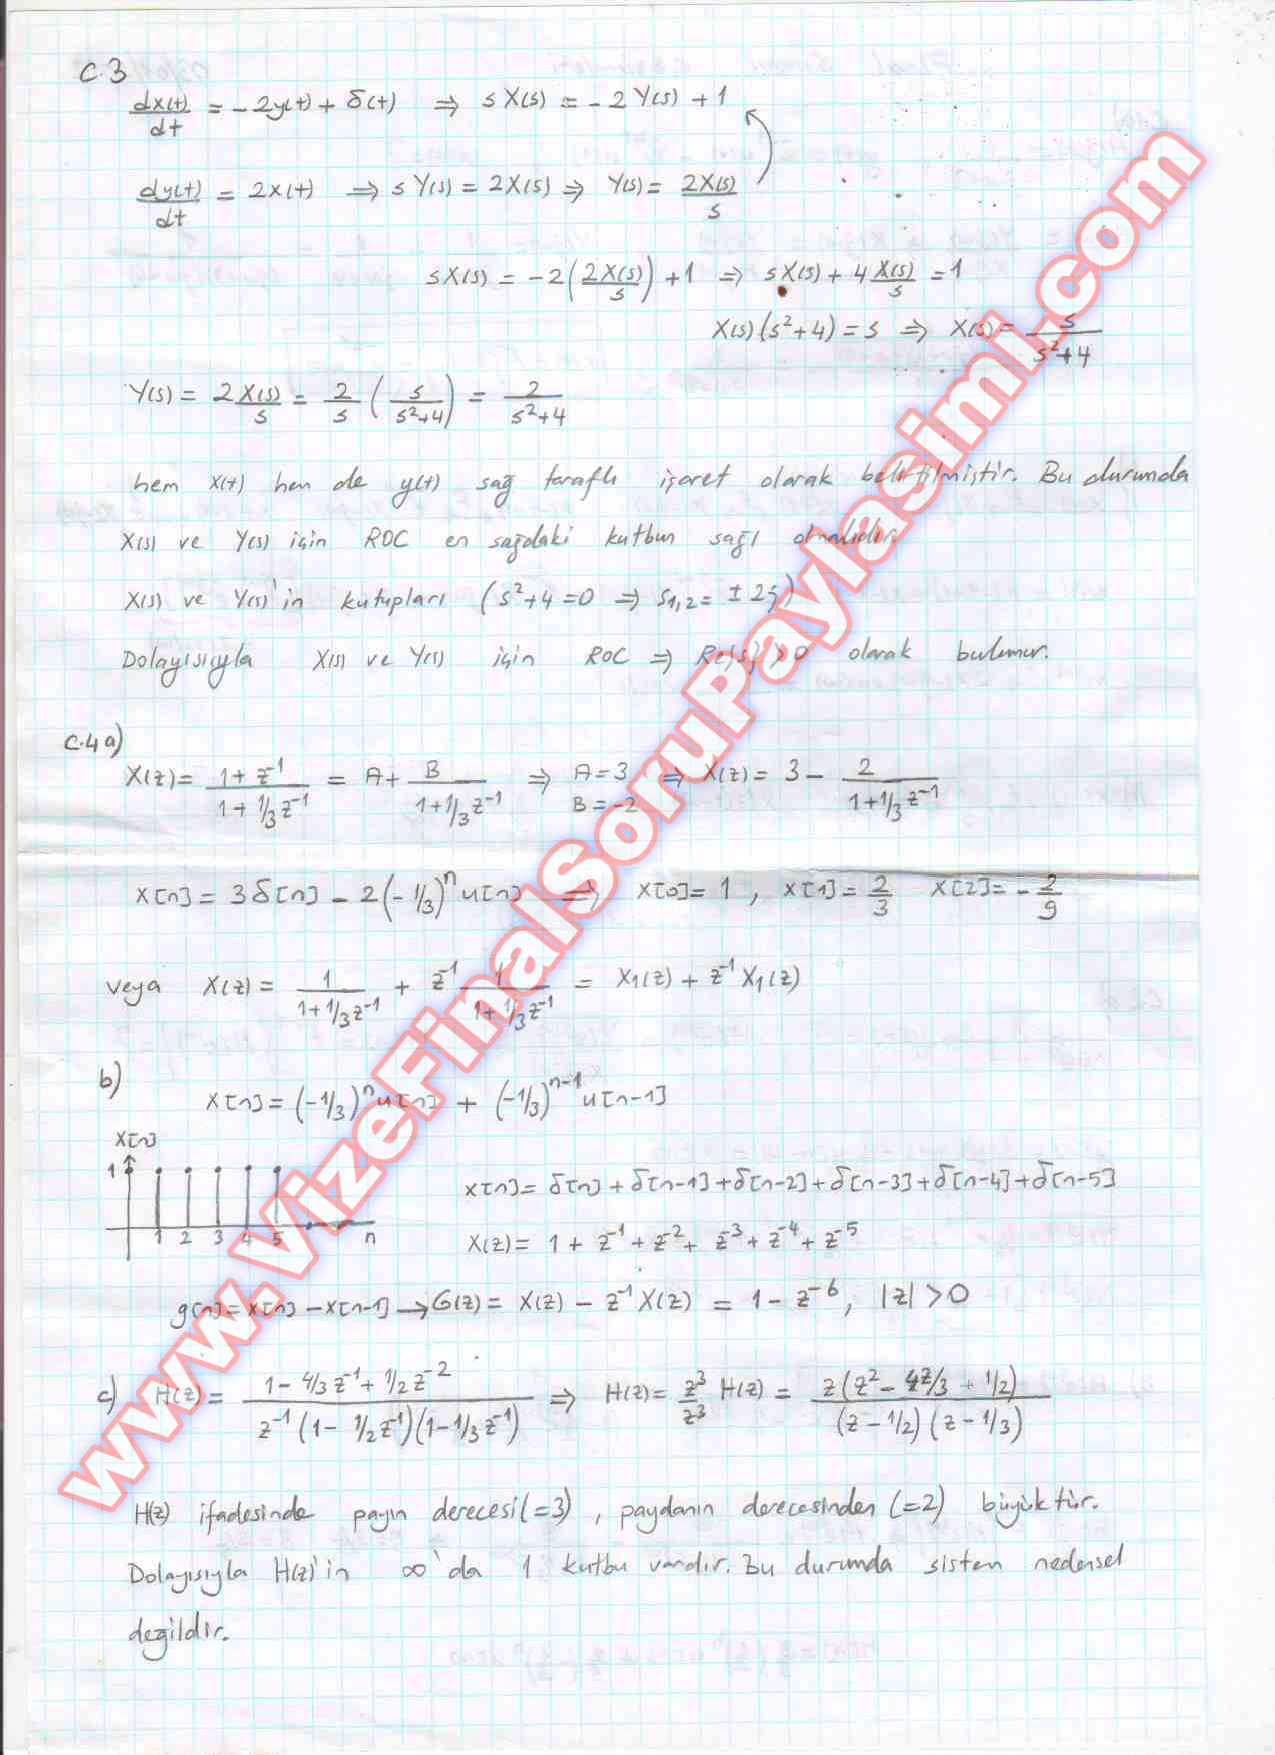 C.3
dx(t)/dt = -2y(t) + δ(t) ⇒ sX(s) = -2Y(s) + 1
dy(t)/dt = 2x(t) ⇒ sY(s) = 2X(s) ⇒ Y(s) = 2X(s)/s
sX(s) = -2(2X(s)/s) + 1 ⇒ sX(s) + 4X(s)/s = 1
X(s)(s²+4) = s ⇒ X(s) = s/(s²+4)
Y(s) = 2X(s)/s = 2/s (s/(s²+4)) = 2/(s²+4)
hem x(t) hem de y(t) sağ taraflı işaret olarak belirtilmiştir. Bu durumda
X(s) ve Y(s) için ROC en sağdaki kutbun sağı olmalıdır.
X(s) ve Y(s)'in kutupları (s²+4=0 ⇒ s1,2 = ±2j)
Dolayısıyla X(s) ve Y(s) için ROC ⇒ Re{s}>0 olarak bulunur.
C.4 a)
X(z) = (1+z⁻¹)/(1+1/3z⁻¹) = A + B/(1+1/3z⁻¹) ⇒ A=3 B=-2 ⇒ X(z) = 3 - 2/(1+1/3z⁻¹)
x[n] = 3δ[n] - 2(-1/3)ⁿu[n] ⇒ x[0]=1, x[1]=2/3 x[2]=-2/9
veya X(z) = 1/(1+1/3z⁻¹) + z⁻¹ 1/(1+1/3z⁻¹) = X₁(z) + z⁻¹X₁(z)
x[n] = (-1/3)ⁿu[n] + (-1/3)ⁿ⁻¹u[n-1]
b)
x[n]
1
1 2 3 4 5 n
x[n] = δ[n] + δ[n-1] + δ[n-2] + δ[n-3] + δ[n-4] + δ[n-5]
X(z) = 1 + z⁻¹ + z⁻² + z⁻³ + z⁻⁴ + z⁻⁵
g[n] = x[n] - x[n-1] → G(z) = X(z) - z⁻¹X(z) = 1 - z⁻⁶, |z|>0
c) H(z) = (1 - 4/3z⁻¹ + 1/2z⁻²)/(z⁻¹(1-1/2z⁻¹)(1-1/3z⁻¹)) ⇒ H(z) = z³/z³ H(z) = z(z² - 4z/3 + 1/2)/((z-1/2)(z-1/3))
H(z) ifadesinde payın derecesi(=3), paydanın derecesinden (=2) büyüktür.
Dolayısıyla H(z)'in ∞'da 1 kutbu vardır. Bu durumda sistem nedensel
değildir.
www.VizeFinalSoruPaylasimi.com